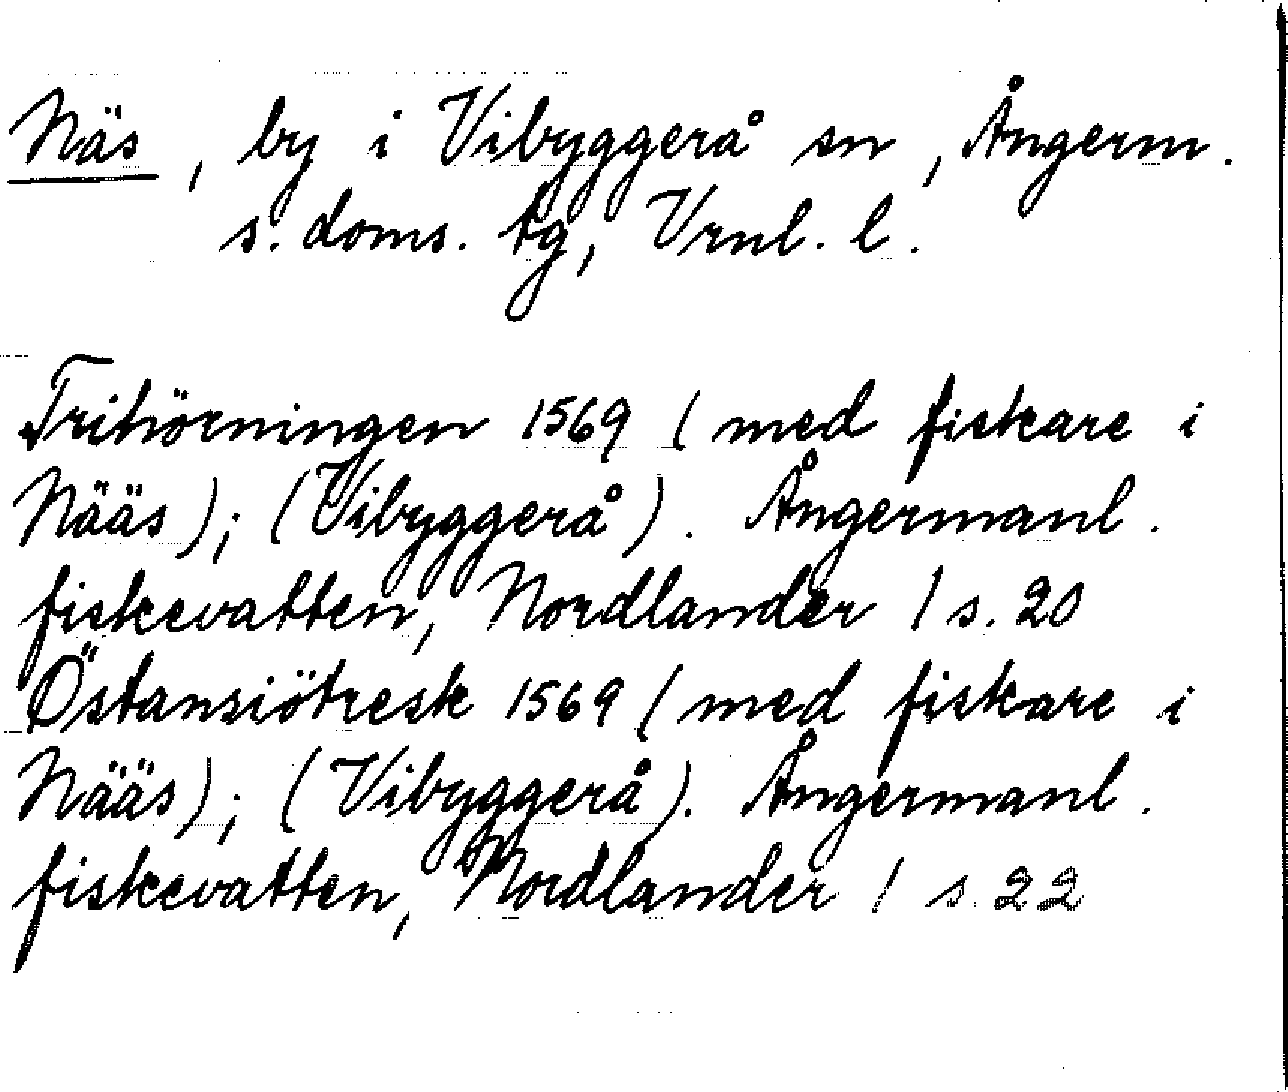 Näs, by i Vibyggerå sn, Ångerm.
s. doms. tg, Vrnl. l.
Trihörningen 1569 (med fiskare i
Nääs); (Vibyggerå). Ångermanl.
fiskevatten, Nordlander 1 s. 20
Östansiötresk 1569 (med fiskare i
Nääs); (Vibyggerå). Ångermanl.
fiskevatten, Nordlander 1 s. 22